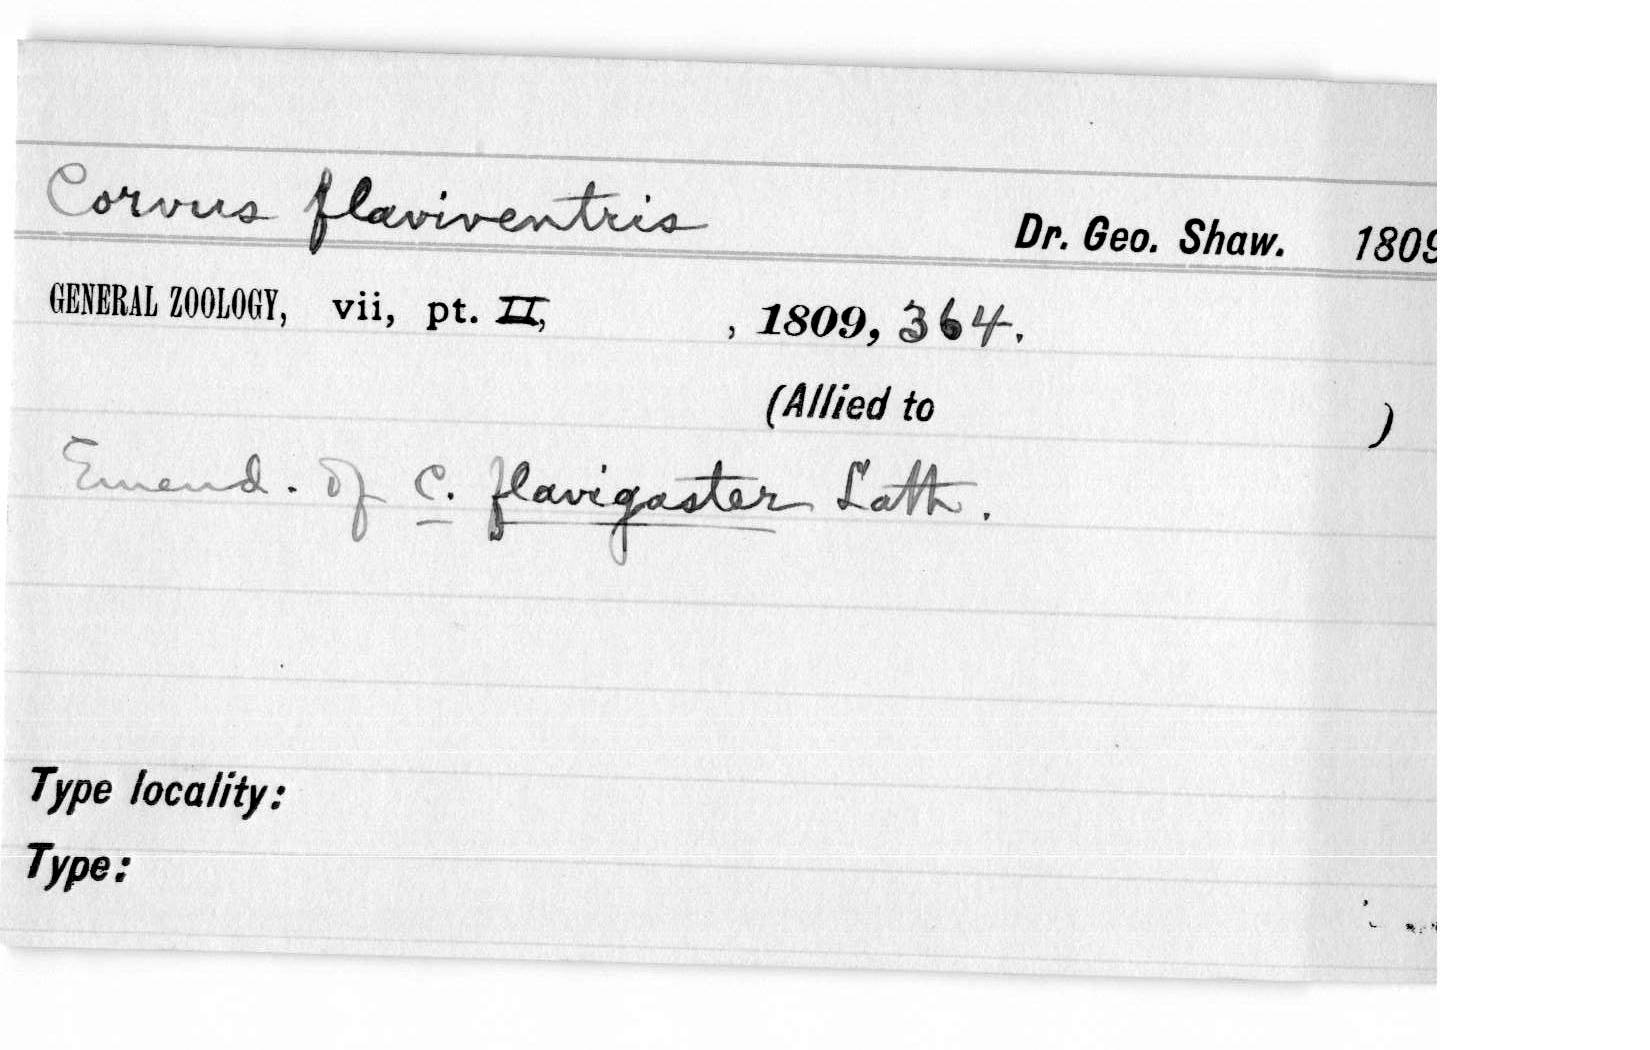 Corvus flaviventris Dr. Geo. Shaw. 1809
GENERAL ZOOLOGY, vii, pt. II, , 1809, 364.
(Allied to )
Emend. of C. flavigaster Lath.
Type locality:
Type: